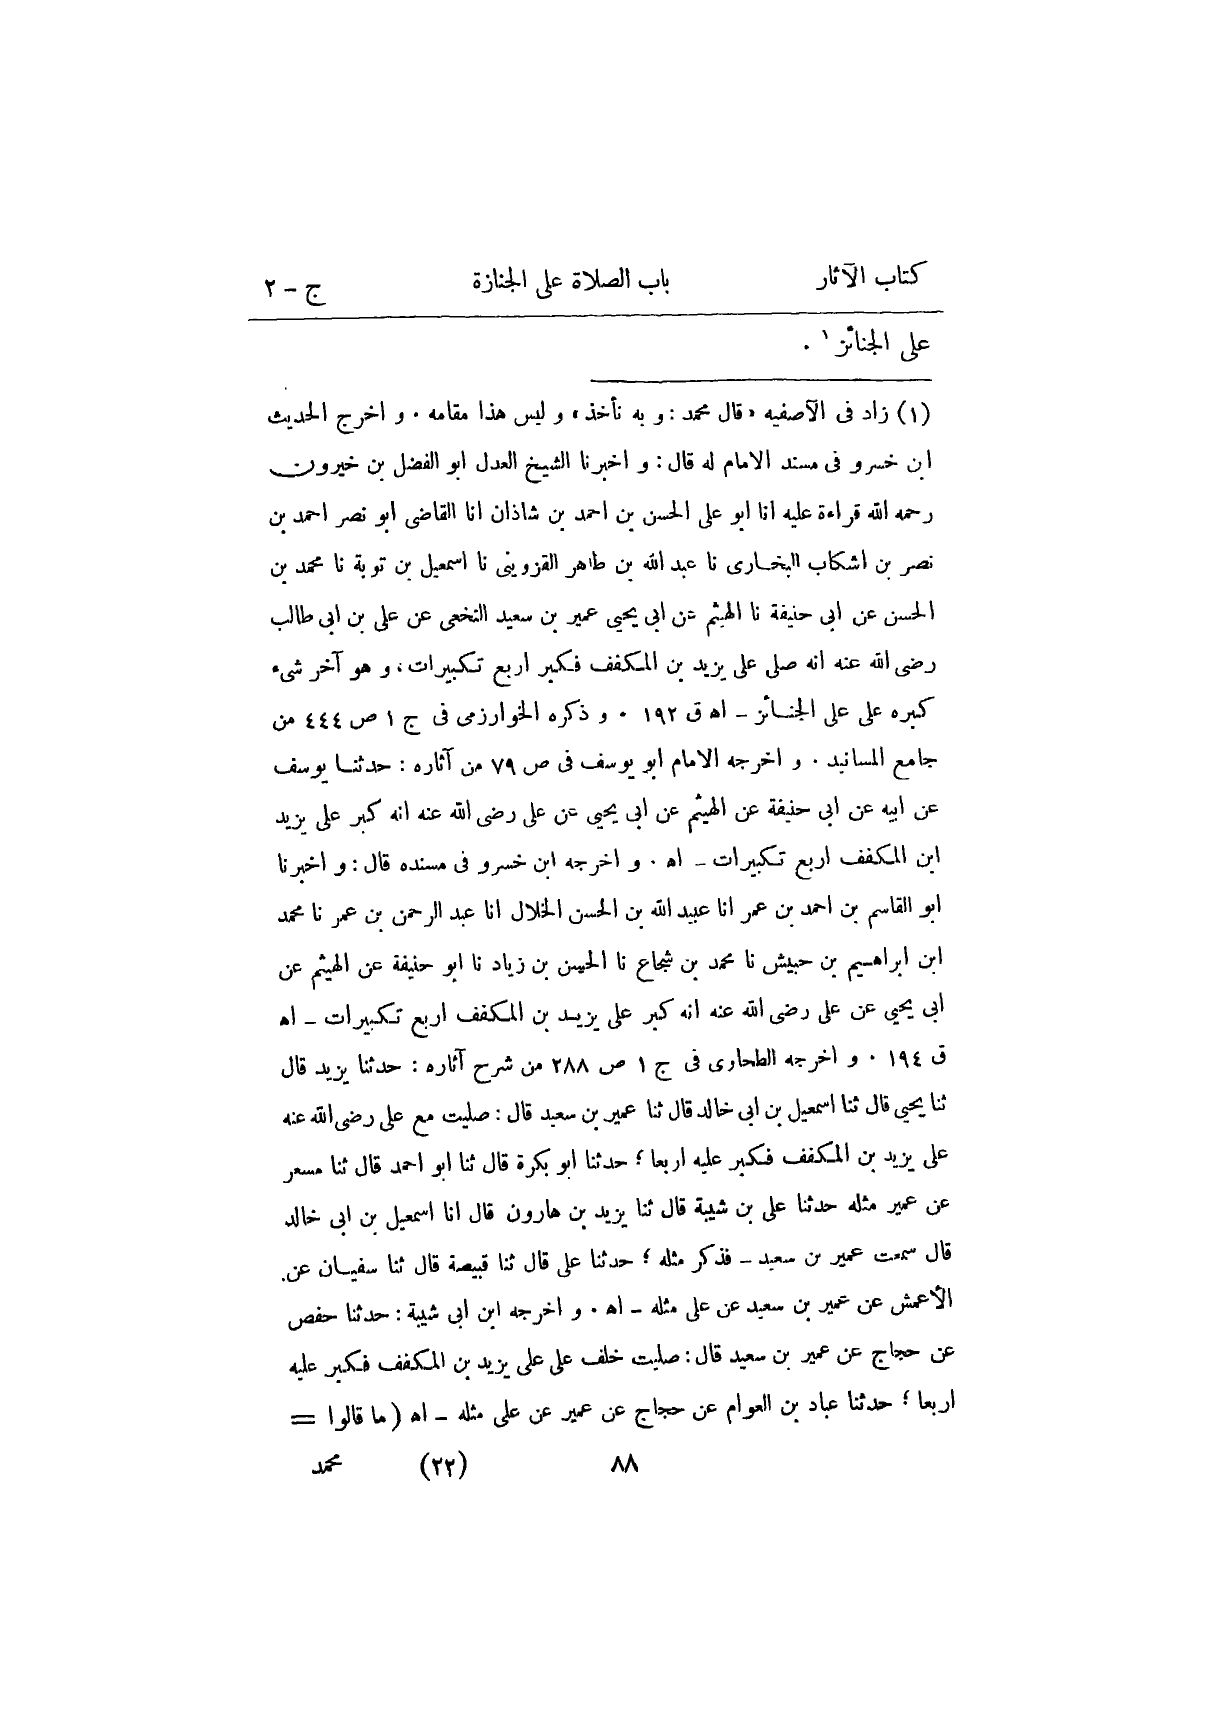 كتاب الآثار باب الصلاة على الجنازة ج – ٢
على الجنائز ١ ٠
(١) زاد فى الآصفيه «قال محمد : و به نأخذ» و ليس هذا مقامه ٠ و اخرج الحديث
ابن خسرو فى مسند الامام له قال : و اخبرنا الشيخ العدل ابو الفضل بن خيرون
رحمه الله قراءة عليه انا ابو على الحسن بن احمد بن شاذان انا القاضى ابو نصر احمد بن
نصر بن اشكاب البخارى نا عبد الله بن طاهر القزوينى نا اسمعيل بن توبة نا محمد بن
الحسن عن ابى حنيفة نا الهيثم عن ابى يحيى عمير بن سعيد النخعى عن على بن ابى طالب
رضى الله عنه انه صلى على يزيد بن المكفف فكبر اربع تكبيرات ، و هو آخر شىء
كبره على على الجنائز – اه ق ١٩٢ ٠ و ذكره الخوارزمى فى ج ١ ص ٤٤٤ من
جامع المسانيد ٠ و اخرجه الامام ابو يوسف فى ص ٧٩ من آثاره : حدثنا يوسف
عن ابيه عن ابى حنيفة عن الهيثم عن ابى يحيى عن على رضى الله عنه انه كبر على يزيد
ابن المكفف اربع تكبيرات – اه ٠ و اخرجه ابن خسرو فى مسنده قال : و اخبرنا
ابو القاسم بن احمد بن عمر انا عبيد الله بن الحسن الخلال انا عبد الرحمن بن عمر نا محمد
ابن ابراهيم بن حبيش نا محمد بن شجاع نا الحسن بن زياد نا ابو حنيفة عن الهيثم عن
ابى يحيى عن على رضى الله عنه انه كبر على يزيد بن المكفف اربع تكبيرات – اه
ق ١٩٤ ٠ و اخرجه الطحاوى فى ج ١ ص ٢٨٨ من شرح آثاره : حدثنا يزيد قال
ثنا يحيى قال ثنا اسمعيل بن ابى خالد قال ثنا عمير بن سعيد قال : صليت مع على رضى الله عنه
على يزيد بن المكفف فكبر عليه اربعا ؛ حدثنا ابو بكرة قال ثنا ابو احمد قال ثنا مسعر
عن عمير مثله حدثنا على بن شيبة قال ثنا يزيد بن هارون قال انا اسمعيل بن ابى خالد
قال سمعت عمير بن سعيد – فذكر مثله ؛ حدثنا على قال ثنا قبيصة قال ثنا سفيان عن
الأعمش عن عمير بن سعيد عن على مثله – اه ٠ و اخرجه ابن ابى شيبة : حدثنا حفص
عن حجاج عن عمير بن سعيد قال : صليت خلف على على يزيد بن المكفف فكبر عليه
اربعا ؛ حدثنا عباد بن العوام عن حجاج عن عمير عن على مثله – اه ( ما قالوا =
٨٨ (٢٢) محمد